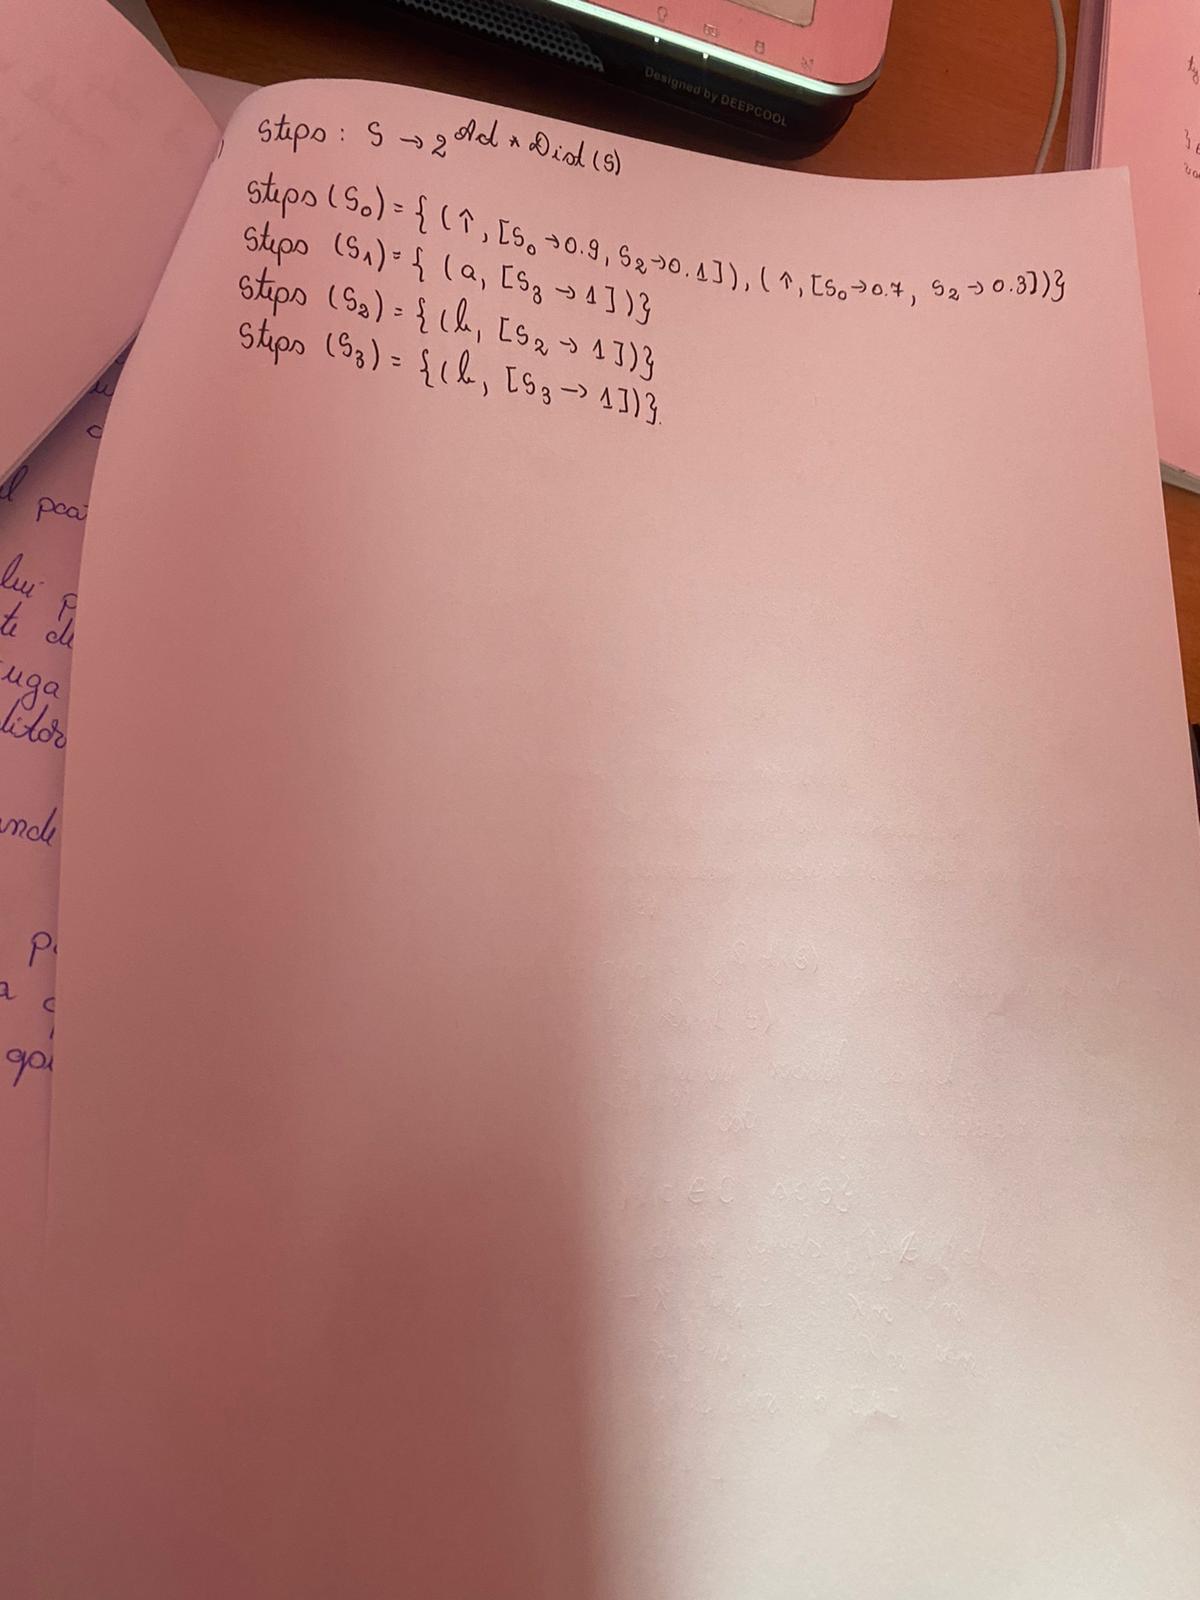 Designed by DEEPCOOL
Steps : S → 2^Act * Dist (S)
Steps (S₀) = { (↑, [S₀ → 0.9, S₂ → 0.1]), (↑, [S₀ → 0.7, S₂ → 0.3])}
Steps (S₁) = { (a, [S₃ → 1])}
Steps (S₂) = {(b, [S₂ → 1])}
Steps (S₃) = {(b, [S₃ → 1])}.
lui
uga